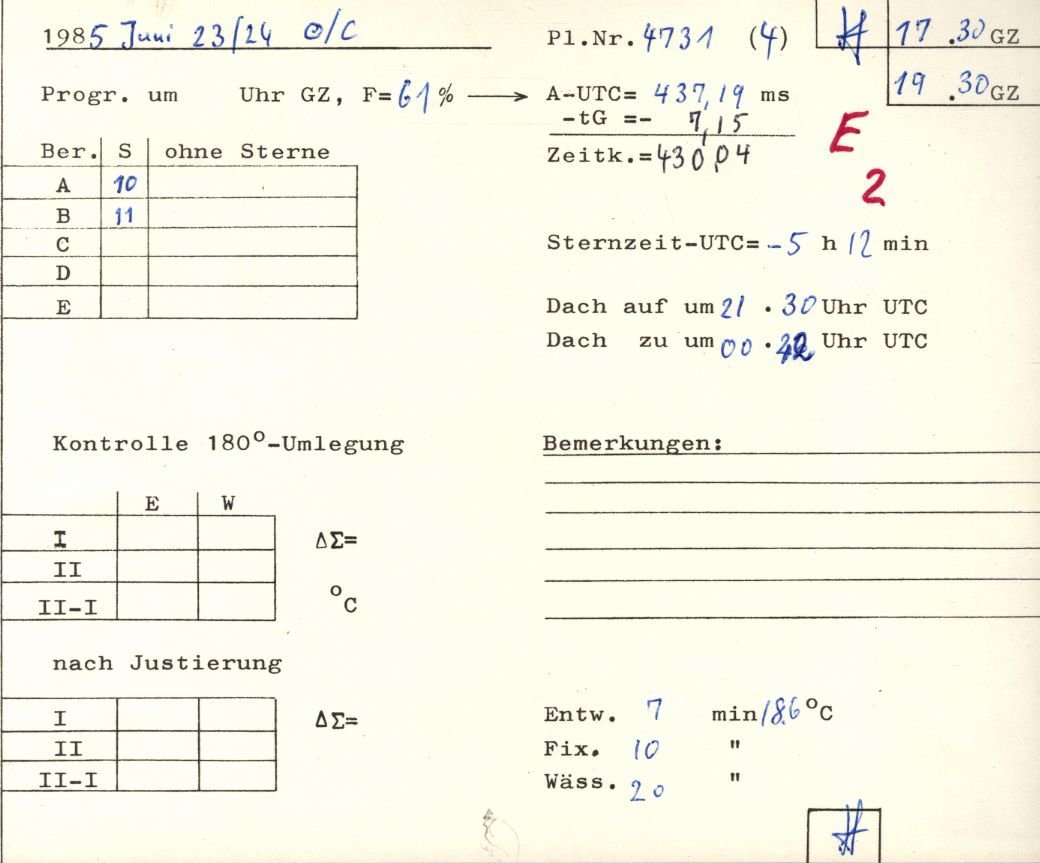 1985 Juni 23/24 O/C
Pl.Nr. 4731 (4)
17 .30 GZ
19 .30 GZ
Progr. um Uhr GZ, F=61% → A-UTC= 437,19 ms
-tG =- 7,15
Zeitk.=430,04
E
2
Ber. S ohne Sterne
A 10
B 11
C
D
E
Sternzeit-UTC= -5 h 12 min
Dach auf um 21 .30 Uhr UTC
Dach zu um 00 . Uhr UTC
Kontrolle 180°-Umlegung
E W
I ΔΣ=
II
II-I °C
nach Justierung
I ΔΣ=
II
II-I
Bemerkungen:
Entw. 7 min/18.6°C
Fix. 10 "
Wäss. 20 "